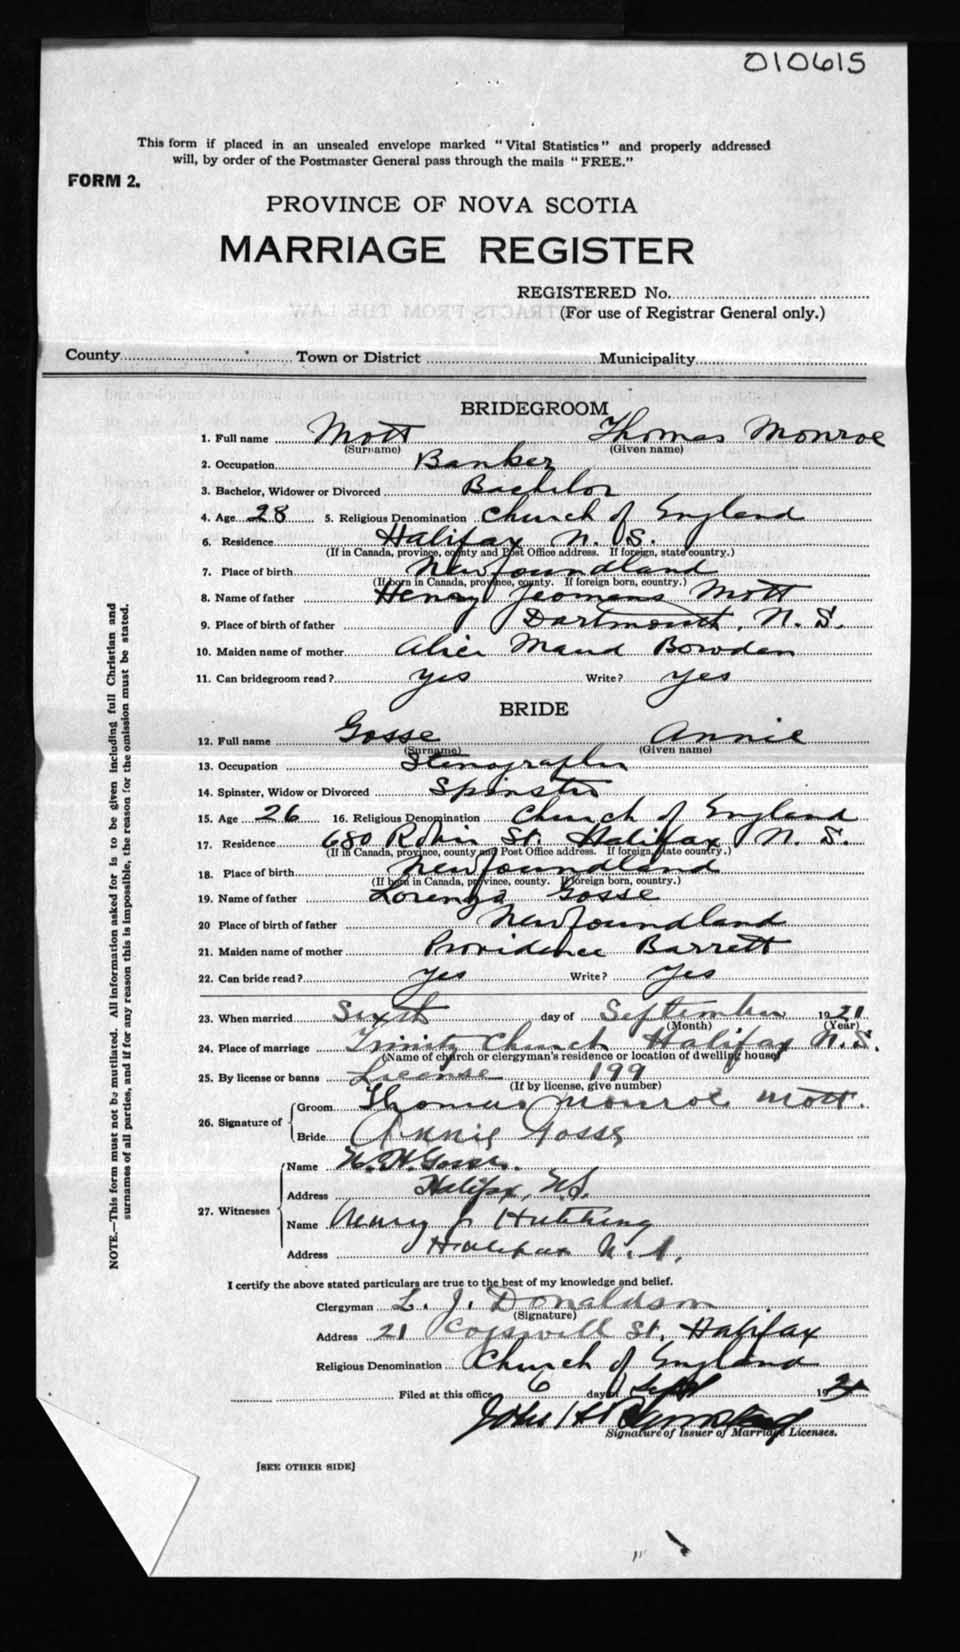 010615
This form if placed in an unsealed envelope marked "Vital Statistics" and properly addressed
will, by order of the Postmaster General pass through the mails "FREE."
FORM 2.
PROVINCE OF NOVA SCOTIA
MARRIAGE REGISTER
REGISTERED No.
(For use of Registrar General only.)
County Town or District Municipality
BRIDEGROOM
1. Full name Mott Thomas Monroe
(Surname) (Given name)
2. Occupation Banker
3. Bachelor, Widower or Divorced Bachelor
4. Age 28 5. Religious Denomination Church of England
6. Residence Halifax N. S.
(If in Canada, province, county and Post Office address. If foreign, state country.)
7. Place of birth Newfoundland
(If born in Canada, province, county. If foreign born, country.)
8. Name of father Henry Yeomens Mott
9. Place of birth of father Dartmouth, N. S.
10. Maiden name of mother Alice Maud Bowden
11. Can bridegroom read? yes Write? yes
BRIDE
12. Full name Gosse Annie
(Surname) (Given name)
13. Occupation Stenographer
14. Spinster, Widow or Divorced Spinster
15. Age 26 16. Religious Denomination Church of England
17. Residence 680 Robie St. Halifax N. S.
(If in Canada, province, county and Post Office address. If foreign, state country.)
18. Place of birth Newfoundland
(If born in Canada, province, county. If foreign born, country.)
19. Name of father Lorenza Gosse
20 Place of birth of father Newfoundland
21. Maiden name of mother Providence Barrett
22. Can bride read? yes Write? yes
23. When married Sixth day of September 1921
(Month) (Year)
24. Place of marriage Trinity Church Halifax N.S.
(Name of church or clergyman's residence or location of dwelling house)
25. By license or banns License 199
(If by license, give number)
26. Signature of Groom Thomas Monroe Mott.
Bride Annie Gosse
27. Witnesses Name H. Gosse.
Address Halifax, N.S.
Name Henry J. Hutchings
Address Halifax N.S.
I certify the above stated particulars are true to the best of my knowledge and belief.
Clergyman L. J. Donaldson
(Signature)
Address 21 Cogswell St. Halifax
Religious Denomination Church of England
Filed at this office 6 day of Sept 1921
John
Signature of Issuer of Marriage Licenses.
[SEE OTHER SIDE]
NOTE.—This form must not be mutilated. All information asked for is to be given including full Christian and
surnames of all parties, and if for any reason this is impossible, the reason for the omission must be stated.